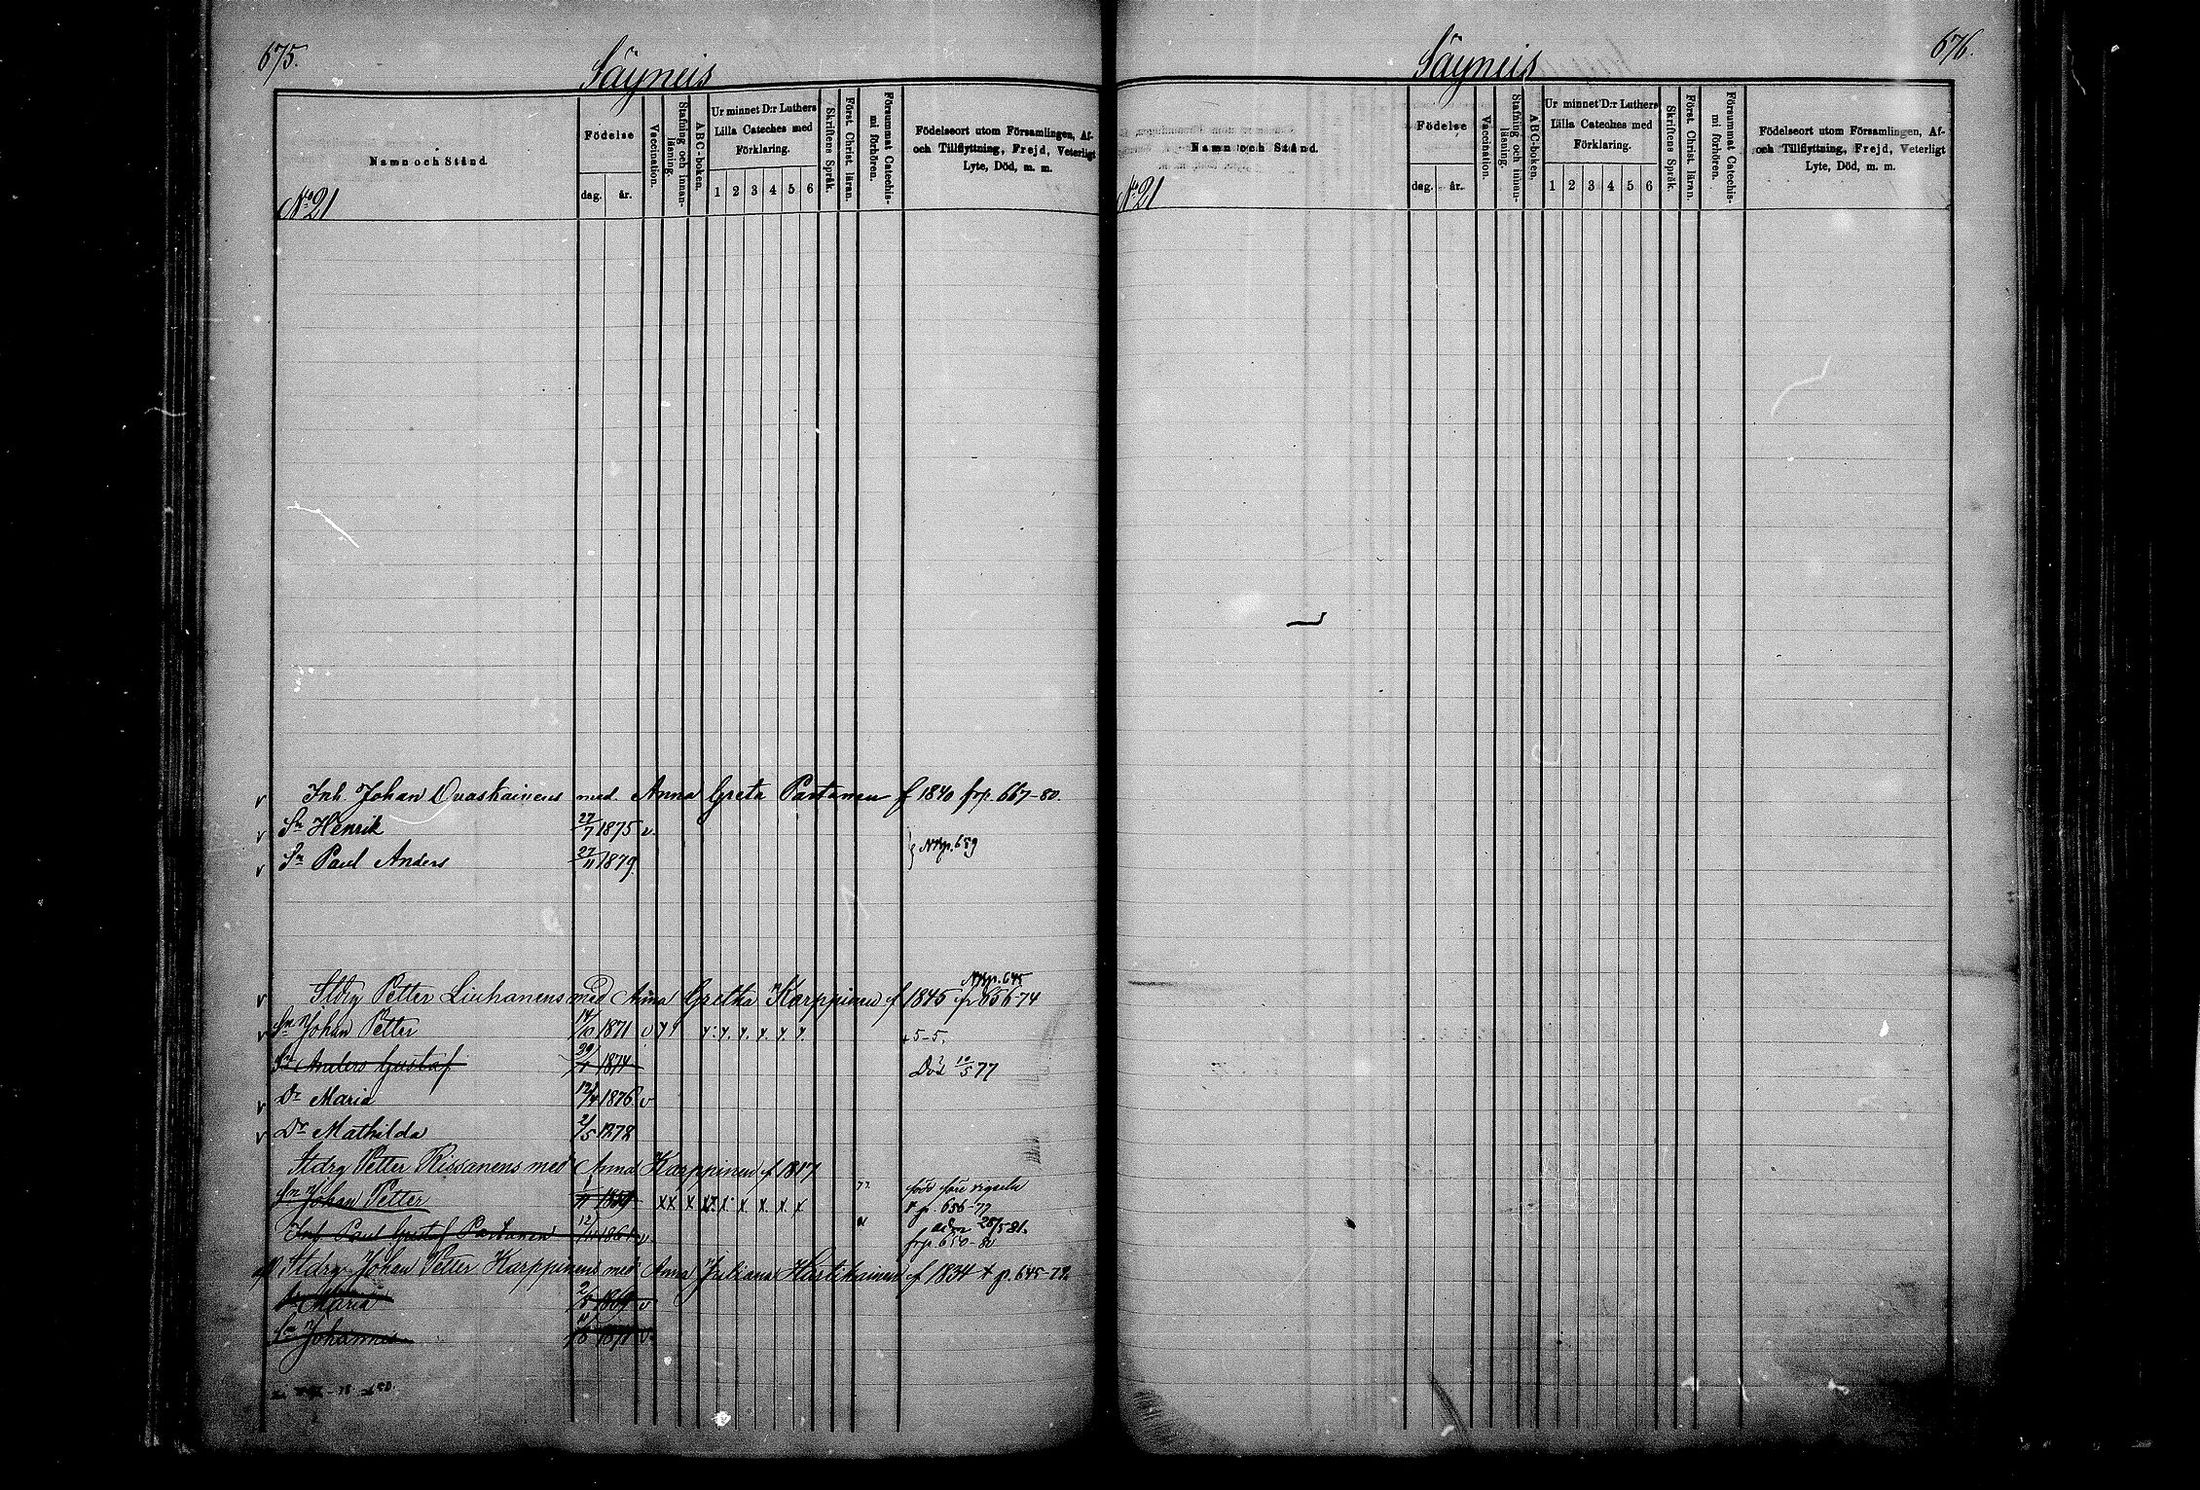 675.
Säyneis
Namn och Stånd
Födelse
dag. år.
Vaccination.
Stafning och innanläsning.
ABC-boken.
Ur minnet D:r Luthers
Lilla Cateches med
Förklaring.
1 2 3 4 5 6
Skriftens Språk.
Först. Christ. läran.
Försummat Catechismi förhören.
Födelseort utom Församlingen, Af-
och Tillflyttning, Frejd, Veterligt
Lyte, Död, m. m.
No 21
v Inh. Johan Ovaskainens med Anna Greta Partanen f 1840 frp. 667-80.
v Sn Henrik 27/7 1875 v.
v Sn Paul Anders 27/11 1879.
} Nkp. 659
Nkp. 645
v Stdrg Petter Liuhanens med Anna Gretha Karppinen f 1845 fr 656-74
v Sn Johan Petter 14/10 1871 v y y y. y. y. y. y. y. + 5-5.
Sn Anders Gustaf 1874 Död 10/5 77
v Dr Maria 12/4 1876 v
v Dr Mathilda 2/5 1878
Stdrg Petter Rissanens med Anna Karppinen f 1817
Sn Johan Petter 1/11 1859 x x x x x x x x x 77 född före vigseln
p. 656-77
Inh Paul Gustaf Partanen 12/11 1861 v 28/5 81.
frp. 650-80
Stdrg Johan Petter Karppinens med Anna Juliana Hartikainen f 1834 + p. 645-72.
Dr Maria 2/5 1869 v
Sn Johannes 1871 v
676.
Säyneis
Namn och Stånd.
Födelse
dag. år.
Vaccination.
Stafning och innanläsning.
ABC-boken.
Ur minnet D:r Luthers
Lilla Cateches med
Förklaring.
1 2 3 4 5 6
Skriftens Språk.
Först. Christ. läran.
Försummat Catechismi förhören.
Födelseort utom Församlingen, Af-
och Tillflyttning, Frejd, Veterligt
Lyte, Död, m. m.
No 21